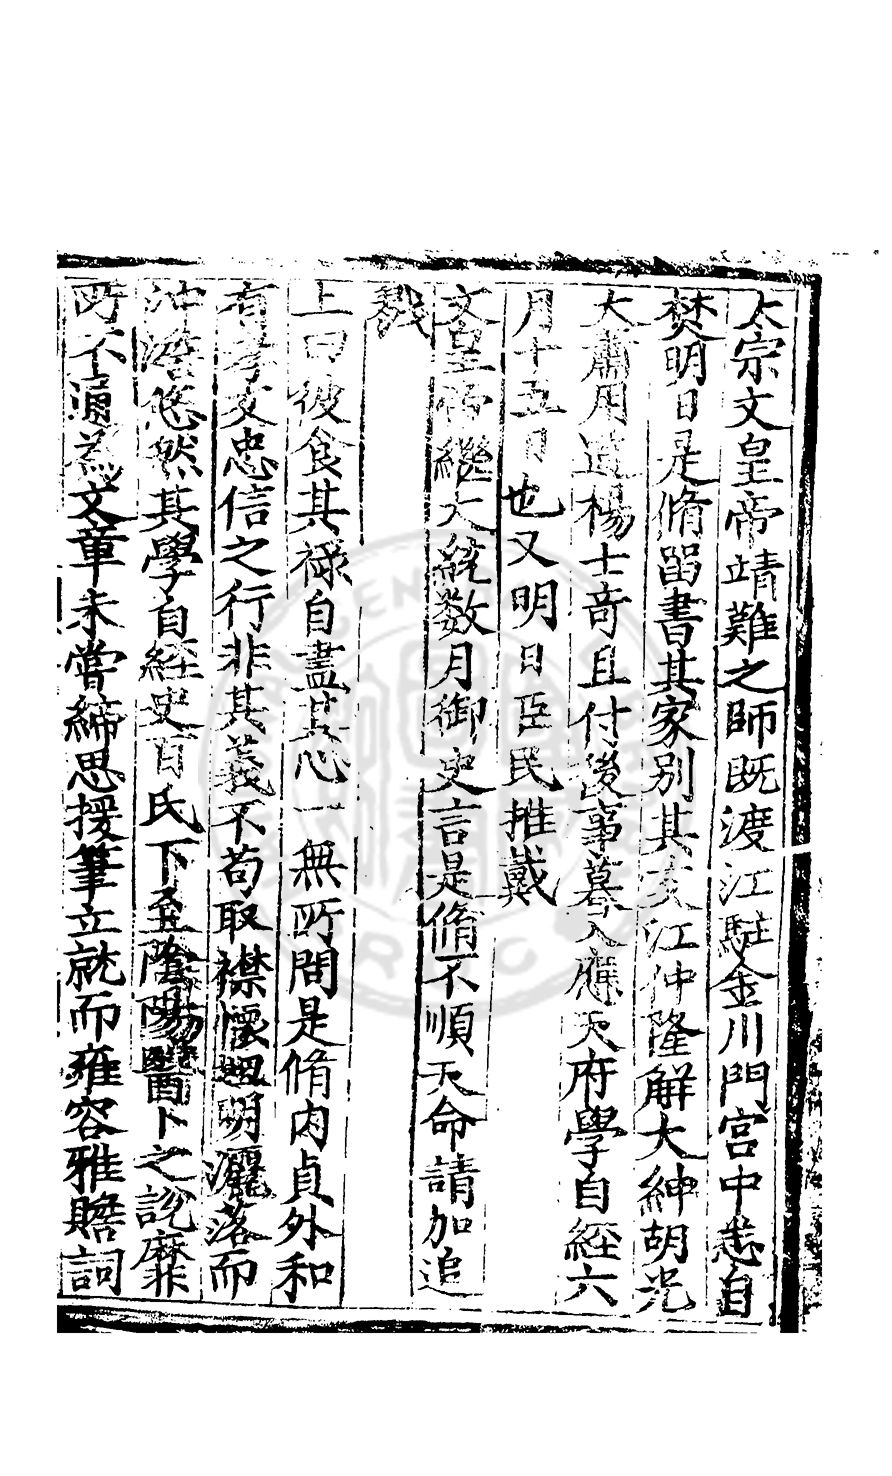 太宗文皇帝靖難之師既渡江駐金川門宮中悉自
焚明日是脩留書其家别其友江仲隆解大紳胡光
大蕭用道楊士奇且付後事暮入應天府學自經六
月十五日也又明日臣民推戴
文皇帝繼大統数月御史言是脩不順天命請加追
戮
上曰彼食其禄自盡其心一無所問是脩内貞外和
有孝友忠信之行非其義不苟取襟懷明灑落而
沖澹悠然其學自經史百氏下至陰陽醫卜之說靡
所不通為文章未嘗締思援筆立就而雍容雅贍詞